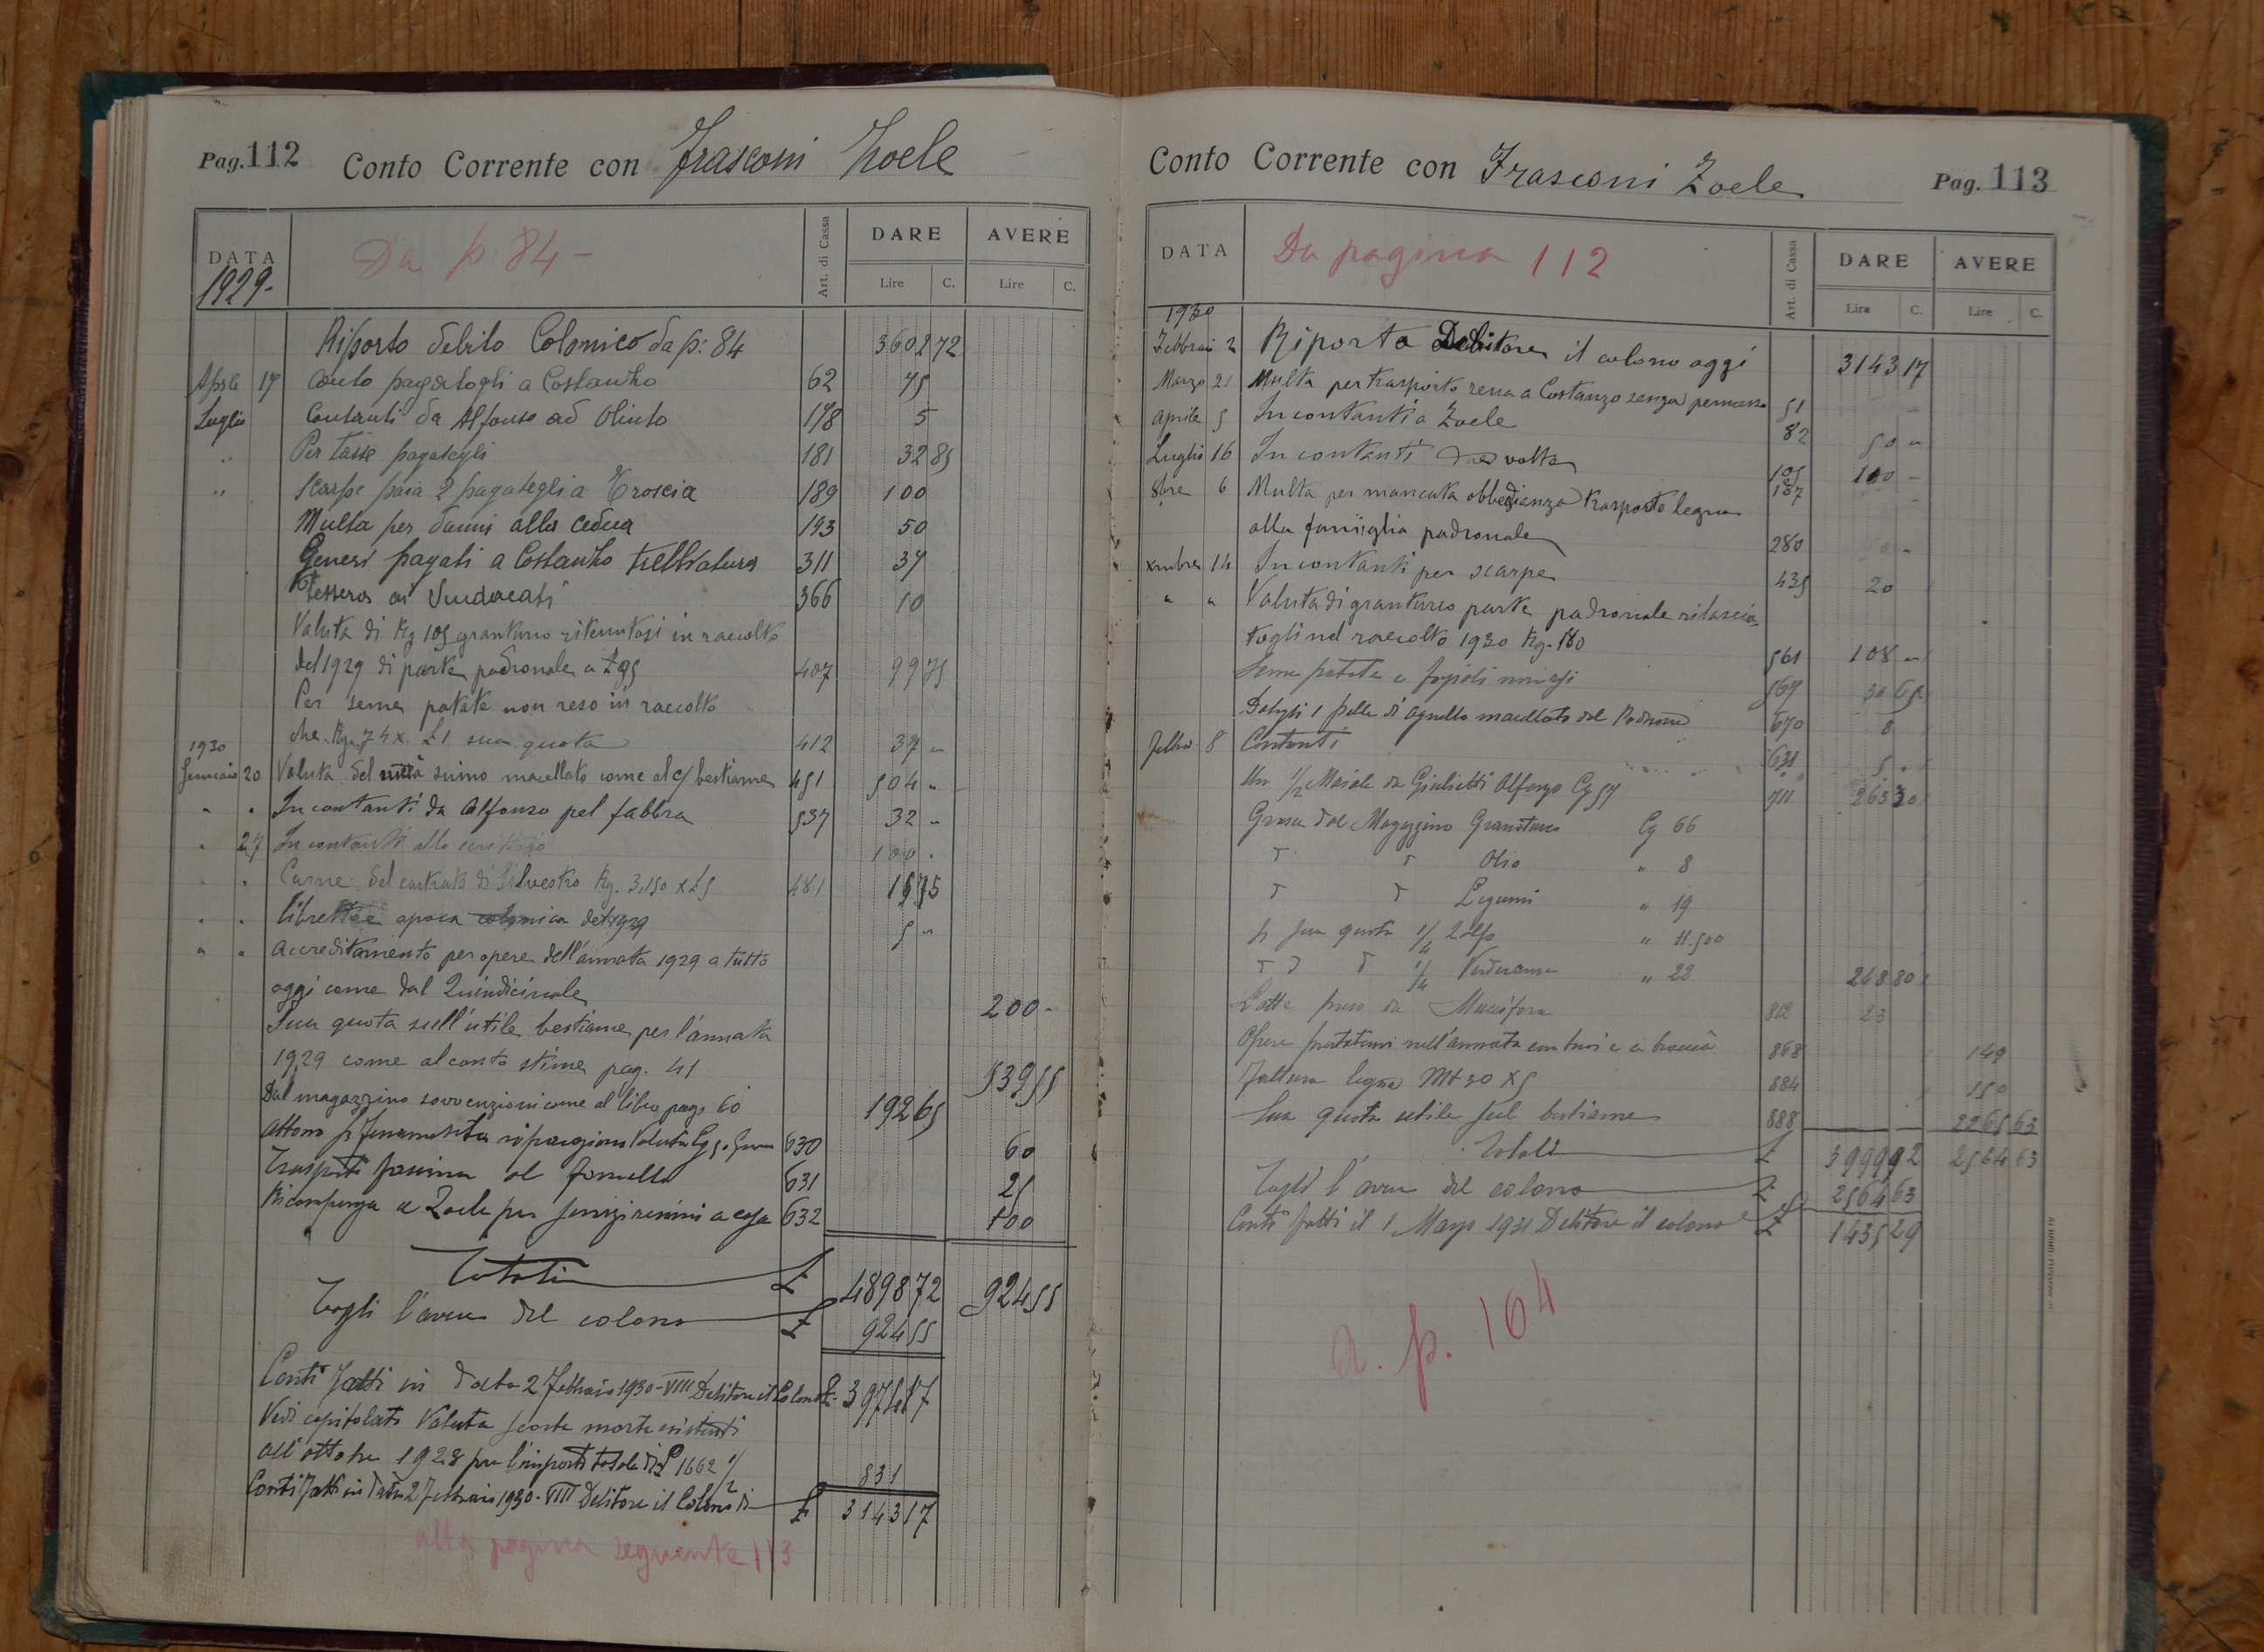 Pag. 112 Conto Corrente con Frasconi Zoele
DATA
1929-
Da p. 84 -
Art. di Cassa
DARE
AVERE
Lire C. Lire C.
Riporto debito Colonico da p: 84 3602 72
Aprile 17 Conto pagatogli a Costanzo 62 75
Luglio Contanti da Alfonso ad Olinto 178 5
" Per tasse pagategli 181 32 85
" Scarpe paia 2 pagategli a Troscia 189 100
Multa per danni alla cedua 193 50
Generi pagati a Costanzo trebbiatura 311 37
Tessera ai Sindacati 366 10
Valuta di Kg 105 granturco ritenutosi in raccolto
del 1929 di parte padronale a £ 95 407 99 75
Per seme patate non reso in raccolto
che Kg. 74 x. £1 sua quota 412 37 "
1930
Gennaio 20 Valuta del suino macellato come al c/ bestiame 451 504 "
" " In contanti da Alfonso pel fabbro 537 32 "
" 27 In contanti allo scrittoio 100 "
" " Carne del castrato di Silvestro Kg. 3,150 x £5 481 15 75
" " libretto apoca colonica del 1929 5 "
" " Accreditamento per opere dell'annata 1929 a tutto
oggi come dal Quindicinale 200 -
Sua quota sull'utile bestiame per l'annata
1929 come al conto stime pag. 41 539 55
Dal magazzino sovvenzioni come al libro pag. 60 192 65
630 60
Trasporti fascina al fornello 631 25
Ricompensa a Zoele per servizi a casa 632 100
Totali £ 4898 72 924 55
Togli l'avere del colono £ 924 55
Conti fatti in data 2 Febbraio 1930-VIII Debitore il Colono £. 3974 17
Vedi capitolato Valuta scorte morte esistenti
all'ottobre 1928 per l'importo totale di £ 1662 1/2 831
Conti fatti in data 2 Febbraio 1930-VIII Debitore il Colono di £ 3143 17
alla pagina seguente 113
Conto Corrente con Frasconi Zoele Pag. 113
DATA
Da pagina 112
Art. di Cassa
DARE
AVERE
Lire C. Lire C.
1930
Febbraio 2 Riporto Debitore il colono oggi 3143 17
Marzo 21 Multa per trasporto rena a Costanzo senza permesso 51
Aprile 5 In contanti a Zoele 82 50 "
Luglio 16 In contanti due volte 105 e 137 100 -
8bre 6 Multa per mancata obbedienza trasporto legna
alla famiglia padronale 280
xmbre 14 In contanti per scarpe 435 20
" " Valuta di granturco parte padronale rilascia-
togli nel raccolto 1930 Kg. 180 561 108 "
Seme patate e fagioli 567 30 65
Datogli 1 pelle di agnello macellato dal Padrone 670 8
Febbraio 8 Contanti 631 5 "
Un 1/2 Maiale da Giulietti Alfonzo Cg 57 711 263 30
Grasce dal Magazzino Granoturco Cg 66
" " Olio " 8
" " Legumi " 19
p sua quota 1/4 Zolfo " 11.500
" " " 1/4 Verderame " 22 248 80
Latte preso da 812 23
Opere prestatemi nell'annata con buoi e a braccia 868 149
Fattura legna Mt 30 x 5 884 150
Sua quota utile sul bestiame 888 2265 63
Totali £ 3999 92 2564 63
Togli l'avere del colono £ 2564 63
Conti fatti il 1 Marzo 1931 Debitore il colono £ 1435 29
a. p. 164